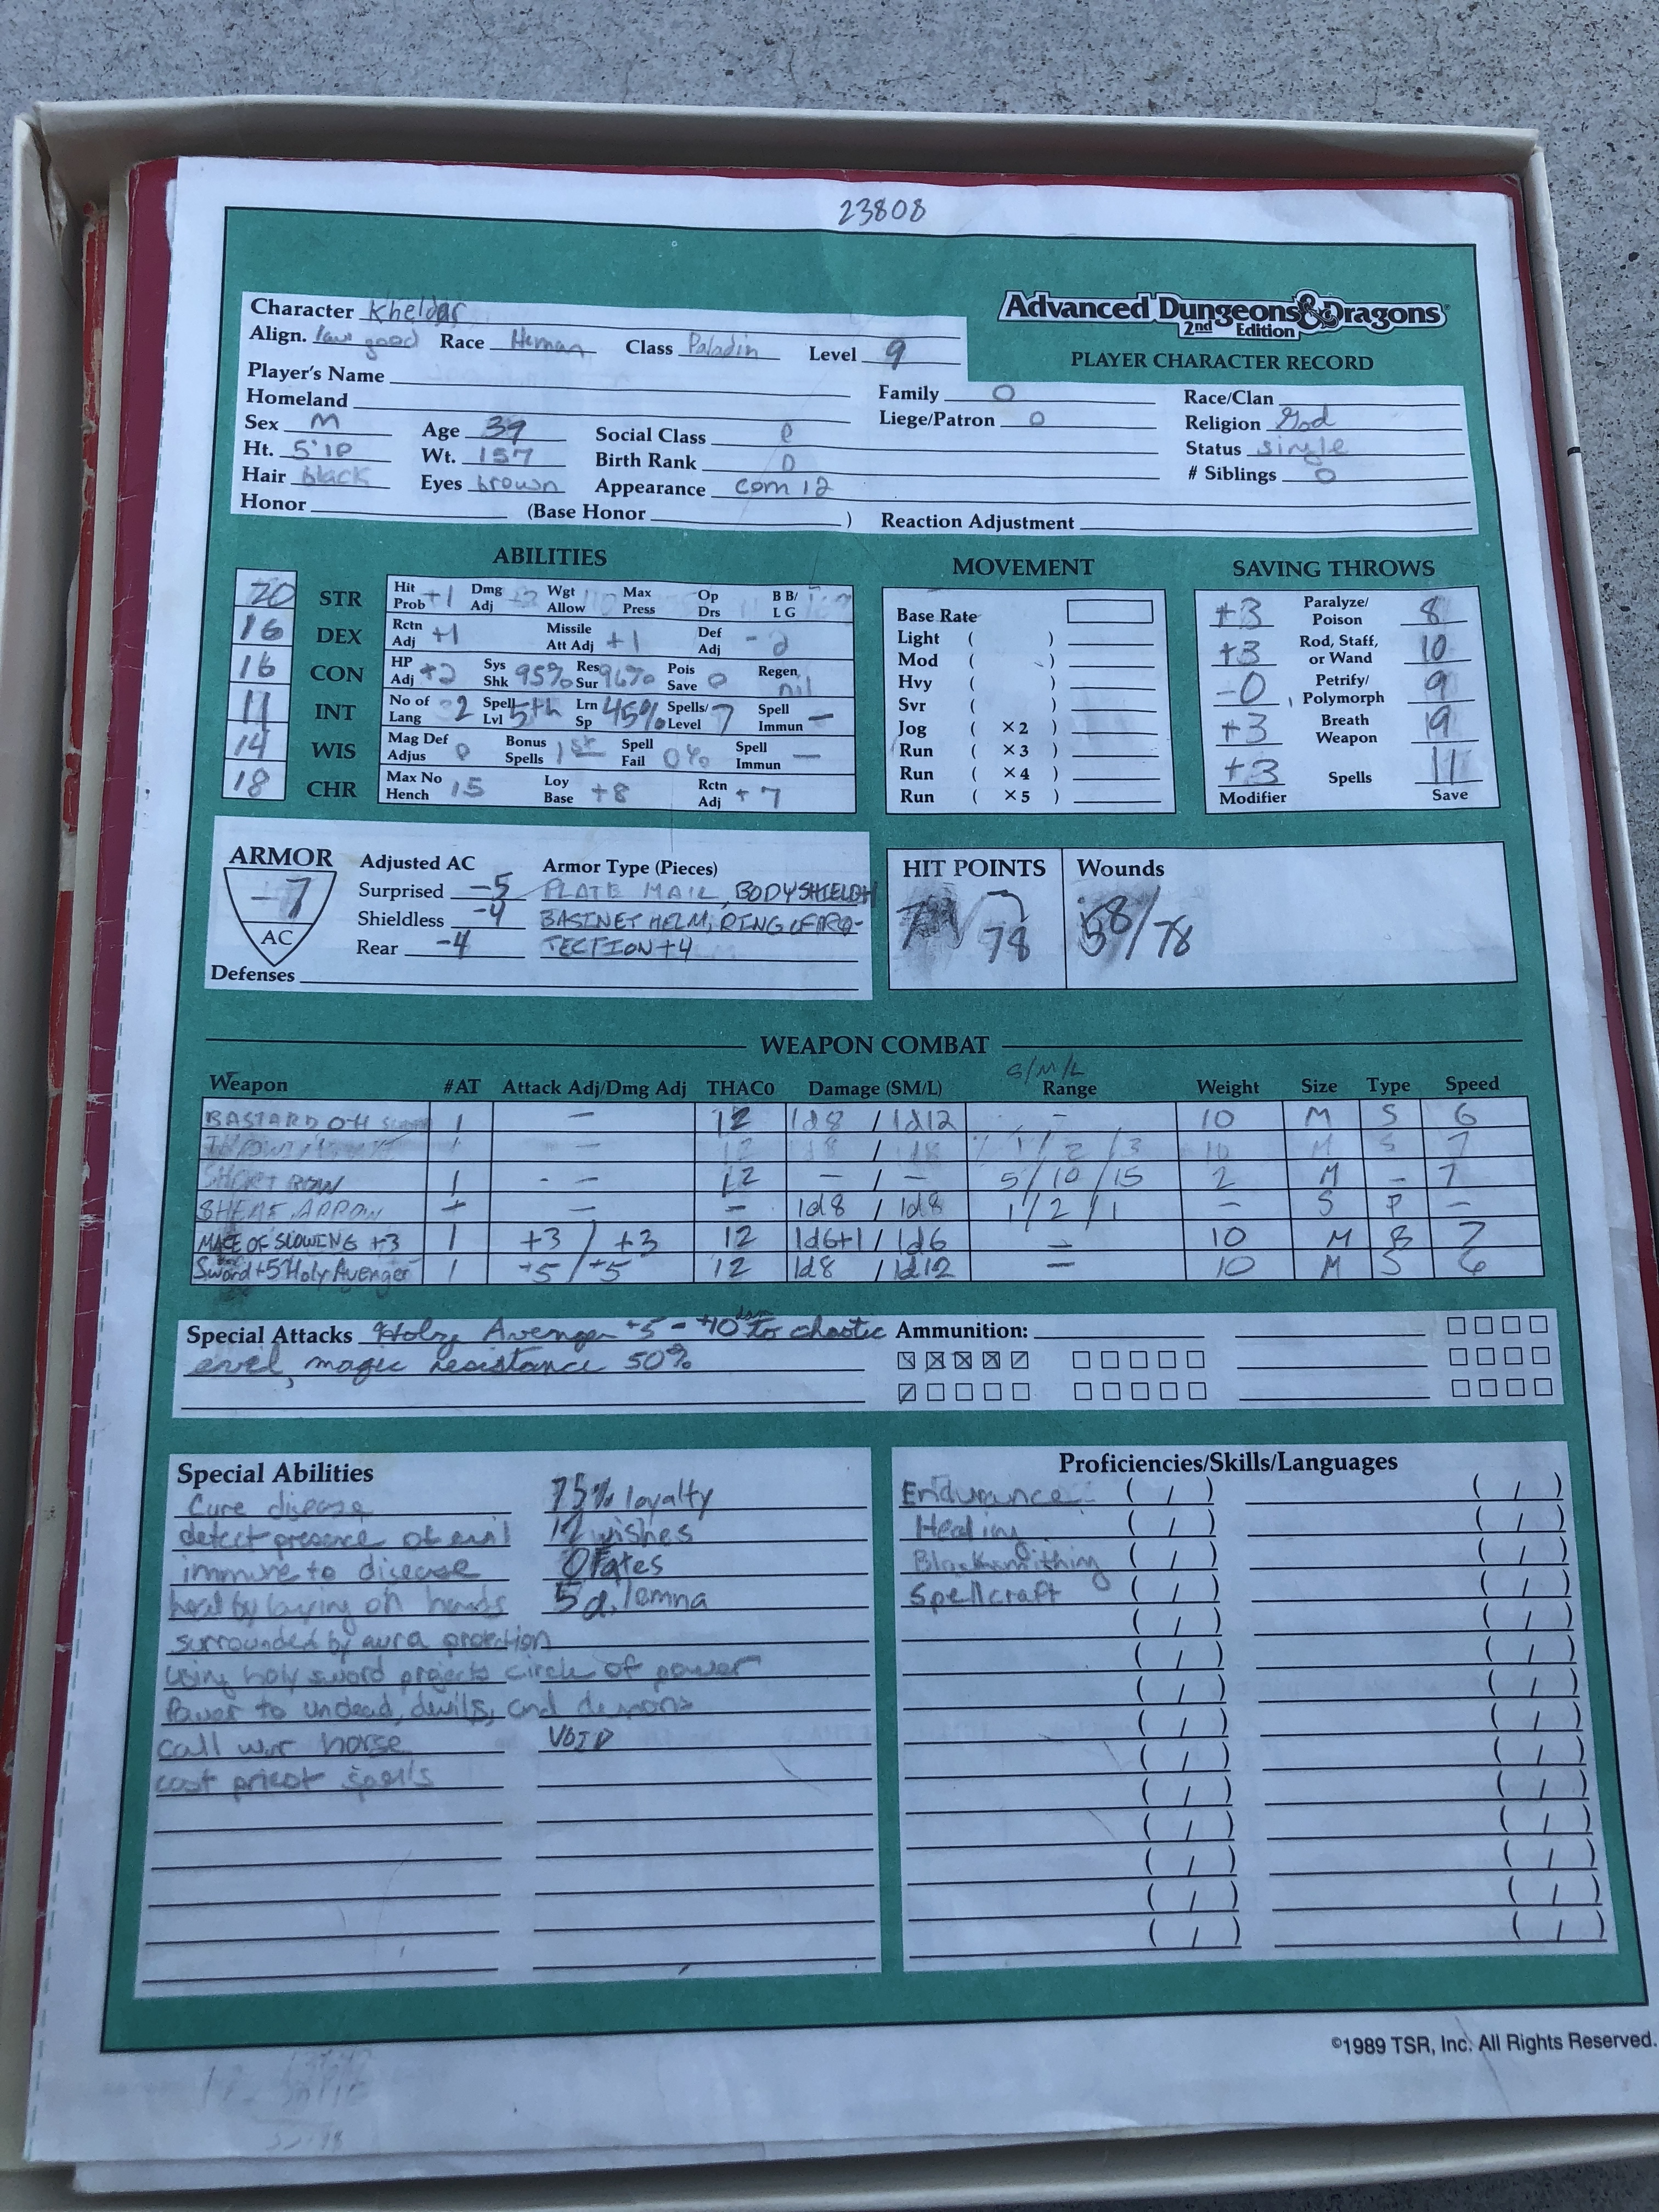 23808
Advanced Dungeons & Dragons®
2nd Edition
PLAYER CHARACTER RECORD
Character Kheldar
Align. law good Race Human Class Paladin Level 9
Player's Name
Homeland
Family 0
Liege/Patron 0
Race/Clan
Religion God
Status single
# Siblings 0
Sex M Age 39 Social Class
Ht. 5'10 Wt. 157 Birth Rank 0
Hair black Eyes brown Appearance com 12
Honor (Base Honor ) Reaction Adjustment
ABILITIES
20 STR Hit Prob +1 Dmg Adj Wgt Allow Max Press Op Drs B B/ L G
16 DEX Rctn Adj +1 Missile Att Adj +1 Def Adj -2
16 CON HP Adj +2 Sys Shk 95% Res Sur 96% Pois Save 0 Regen nil
11 INT No of Lang 2 Spell Lvl 5th Lrn Sp 45% Spells/ Level 7 Spell Immun —
14 WIS Mag Def Adjus 0 Bonus Spells 1st Spell Fail 0% Spell Immun —
18 CHR Max No Hench 15 Loy Base +8 Rctn Adj +7
MOVEMENT
Base Rate
Light ( )
Mod ( )
Hvy ( )
Svr ( )
Jog ( ×2 )
Run ( ×3 )
Run ( ×4 )
Run ( ×5 )
SAVING THROWS
+3 Paralyze/ Poison 8
+3 Rod, Staff, or Wand 10
-0 Petrify/ Polymorph 9
+3 Breath Weapon 9
+3 Spells 11
Modifier Save
ARMOR
-7
AC
Adjusted AC Armor Type (Pieces)
Surprised -5 PLATE MAIL, BODY SHIELD+1
Shieldless -4 BASINET HELM, RING OF PRO-
Rear -4 TECTION +4
Defenses
HIT POINTS
78
Wounds
58/78
WEAPON COMBAT
S/M/L
Weapon #AT Attack Adj/Dmg Adj THAC0 Damage (SM/L) Range Weight Size Type Speed
BASTARD OH 1 — 12 1d8 / 1d12 - 10 M S 6
1 — 12 1d8 / 1d8 1 / 2 / 3 10 M S 7
SHORT BOW 1 - - 12 — / — 5 / 10 / 15 2 M - 7
SHEAF ARROW - 1d8 / 1d8 1 / 2 / 1 — S P —
MACE OF SLOWING +3 1 +3 / +3 12 1d6+1 / 1d6 — 10 M B 7
Sword+5 Holy Avenger 1 +5 / +5 12 1d8 / 1d12 — 10 M S 6
Special Attacks Holy Avenger +5 - +10 dam to chaotic
evil, magic resistance 50%
Ammunition:
Special Abilities
Cure disease
detect presence of evil
immune to disease
heal by laying on hands
surrounded by aura protection
using holy sword projects circle of power
Power to undead, devils, and demons
call war horse
cast priest spells
75% loyalty
12 wishes
0 Fates
5 dilemna
VOID
Proficiencies/Skills/Languages
Endurance ( / ) ( / )
Healing ( / ) ( / )
Blacksmithing ( / ) ( / )
Spellcraft ( / ) ( / )
©1989 TSR, Inc. All Rights Reserved.